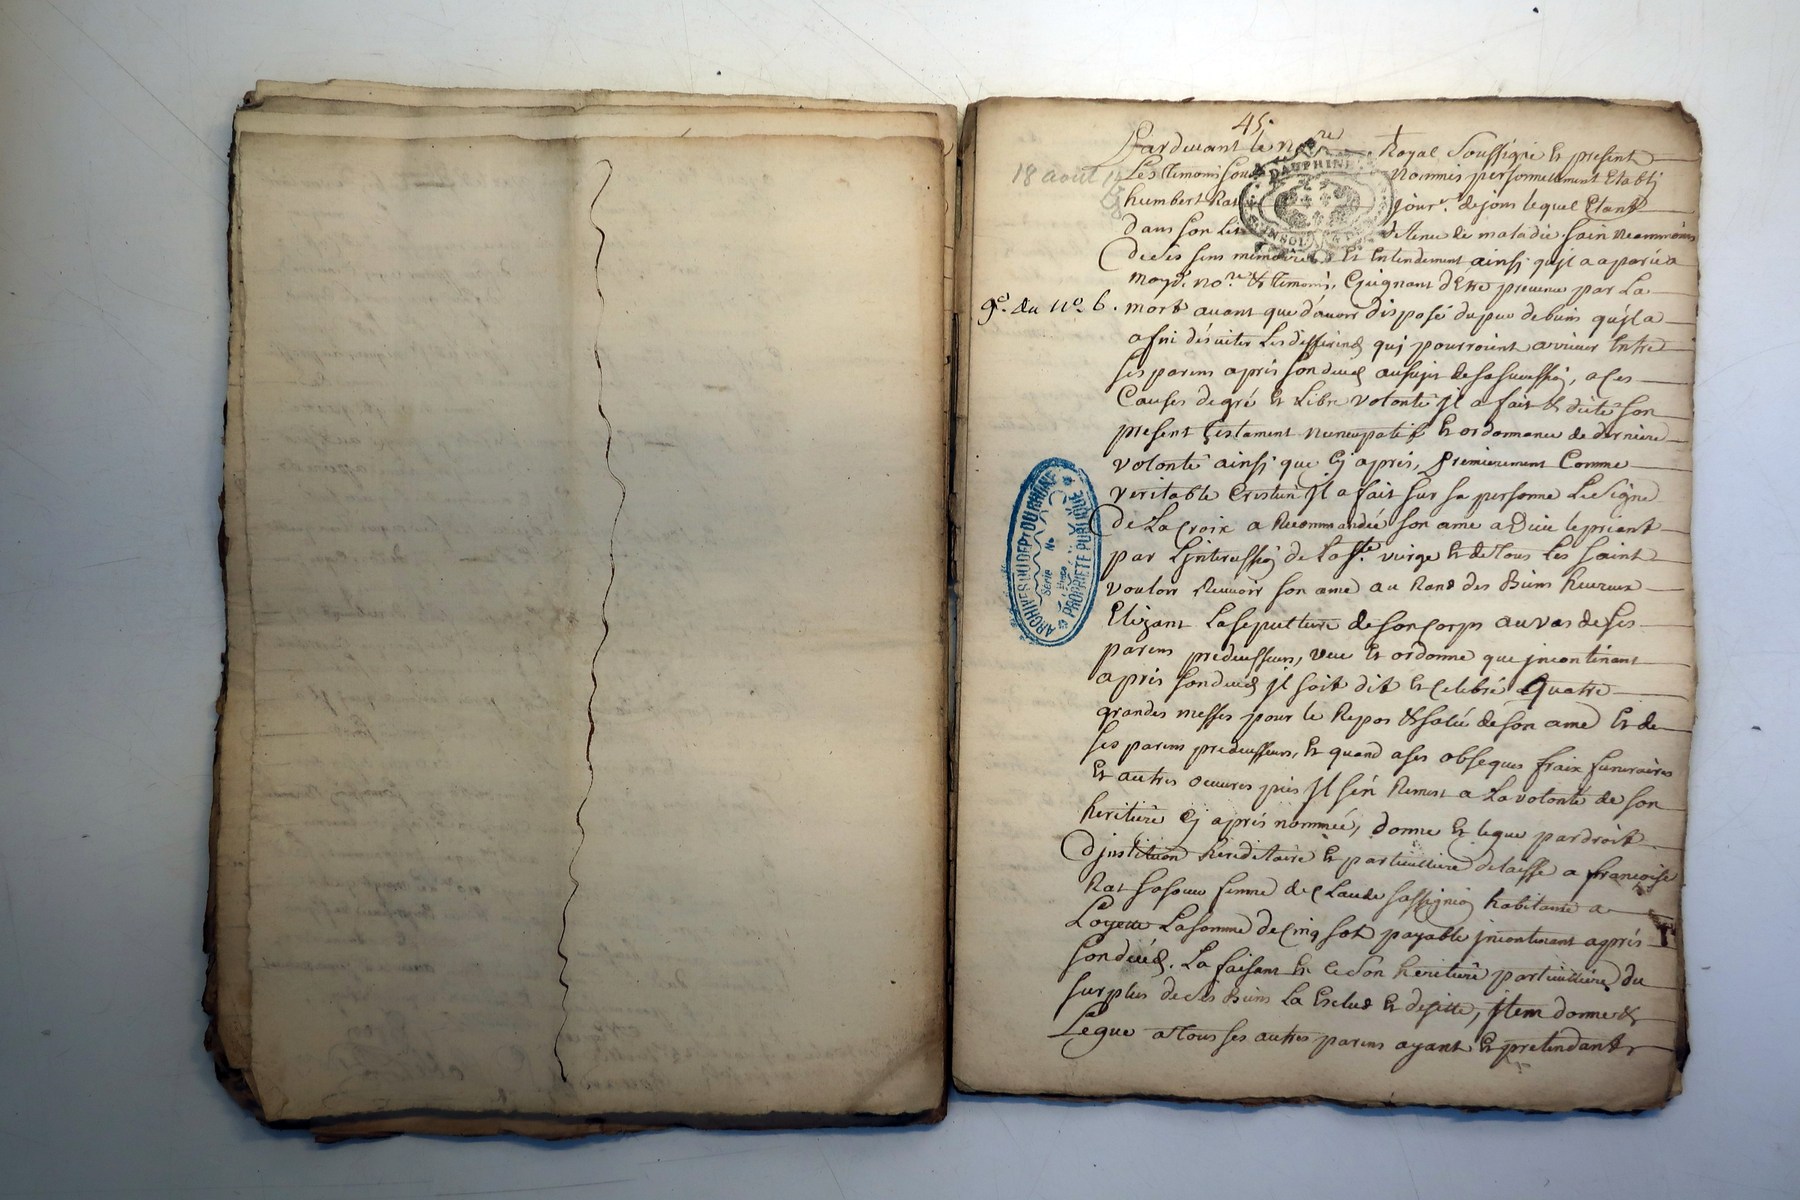 45.
Pardevant le No.re Royal Soussigné Et present
18 aout
Les Temoins sous Nommés personnellement Etabli
DAUPHINE
humbert Rat jour.r de jons lequel Etant
dans son Lit detenu de maladie sain neammoins
de ses sens memoire Et Entendement ainsi qu'jl a aparu a
moyd. no.re & Temoins, Craignant d'Etre prevenu par La
9.e du N.o 6.
mort avant que d'avoir disposé du peu de biens qu'jl a
afin d'éviter Les differends quj pourroient arriver Entre
ses parens aprés son decés au sujet de sa succession, a Ces
Causes de gré Et Libre volonté Jl a fait & dicté son
present Testament nuncupatif Et ordonnance de derniere
volonté ainsj que Cj aprés, Premierement Comme
veritable Cretien Jl a fait sur sa personne Le Signe
de La Croix a Recommandée son ame a Dieu le priant
par L'jntercession de La S.te vierge Et de Tous Les saint
vouloir Recevoir son ame au Rand des Biens heureux
Elizant La sepulture de son Corps au vas de ses
parens predecesseurs, veut Et ordonne que jncontinant
aprés son decés Jl soit dit Et Celebré Quatre
grandes messes pour le Repos & salut de son ame Et de
ses parens predecesseurs, Et quand a ses obseques fraix funeraires
Et autres oeuvres pies Jl s'én Remet a La volonté de son
heritiere Cj aprés nommée, donne Et legue par droit
d'jnstitution hereditaire Et particulliere delaisse a francoise
Rat sa soeur femme de Claude habitante a
Loyette La somme de Cinq sols payable jncontinant aprés
son decés. La faisant Et Son heritiere particulliere du
surplus de ses Biens La Exclud Et dejette, jtem donne &
Legue a Tous ses autres parens ayant Et pretendant
ARCHIVES DU DEPT DU RHÔNE
Série No
PROPRIÉTÉ PUBLIQUE